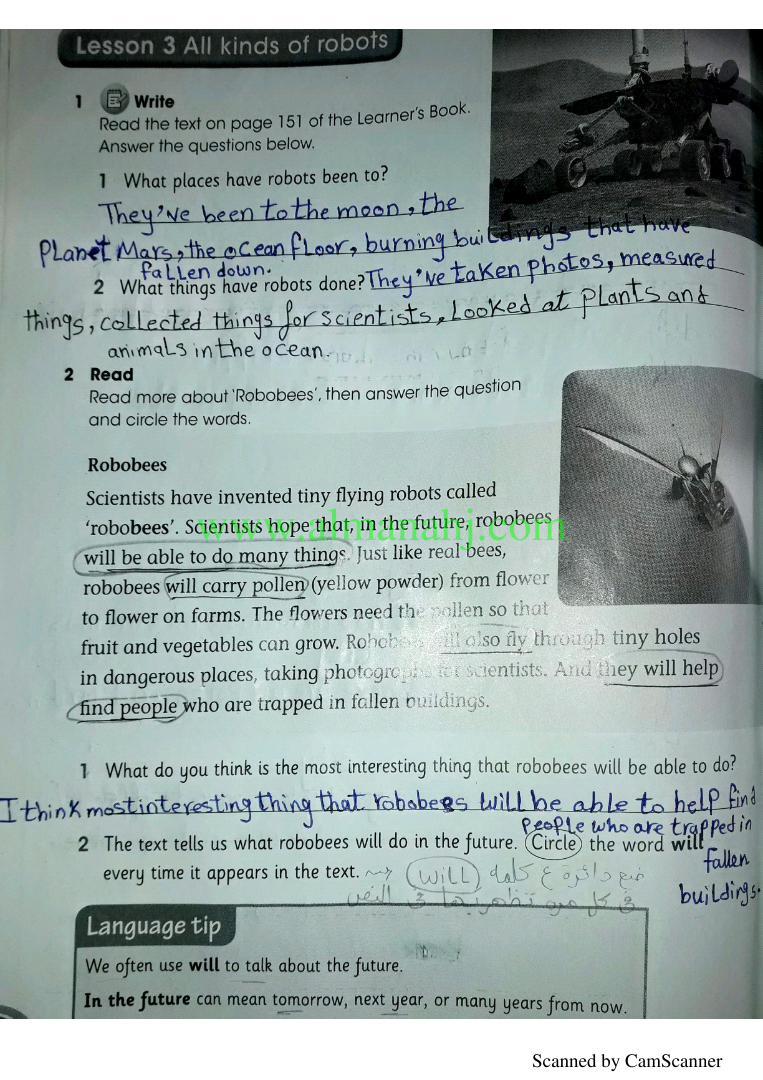 Lesson 3 All kinds of robots
1 Write
Read the text on page 151 of the Learner's Book.
Answer the questions below.
1 What places have robots been to?
They've been to the moon, the
Planet Mars, the ocean floor, burning buildings that have
fallen down.
2 What things have robots done? They've taken photos, measured
things, collected things for scientists, Looked at plants and
animals in the ocean.
2 Read
Read more about 'Robobees', then answer the question
and circle the words.
Robobees
Scientists have invented tiny flying robots called
'robobees'. Scientists hope that, in the future, robobees
www.almanahj.com
will be able to do many things. Just like real bees,
robobees will carry pollen (yellow powder) from flower
to flower on farms. The flowers need the pollen so that
fruit and vegetables can grow. Robobees will also fly through tiny holes
in dangerous places, taking photographs for scientists. And they will help
find people who are trapped in fallen buildings.
1 What do you think is the most interesting thing that robobees will be able to do?
I think most interesting thing that robobees will be able to help find
people who are trapped in
fallen
buildings.
2 The text tells us what robobees will do in the future. Circle the word will
every time it appears in the text. → will ضع دائرة ع كلمة
في كل مرة تظهر بها في النص
Language tip
We often use will to talk about the future.
In the future can mean tomorrow, next year, or many years from now.
Scanned by CamScanner